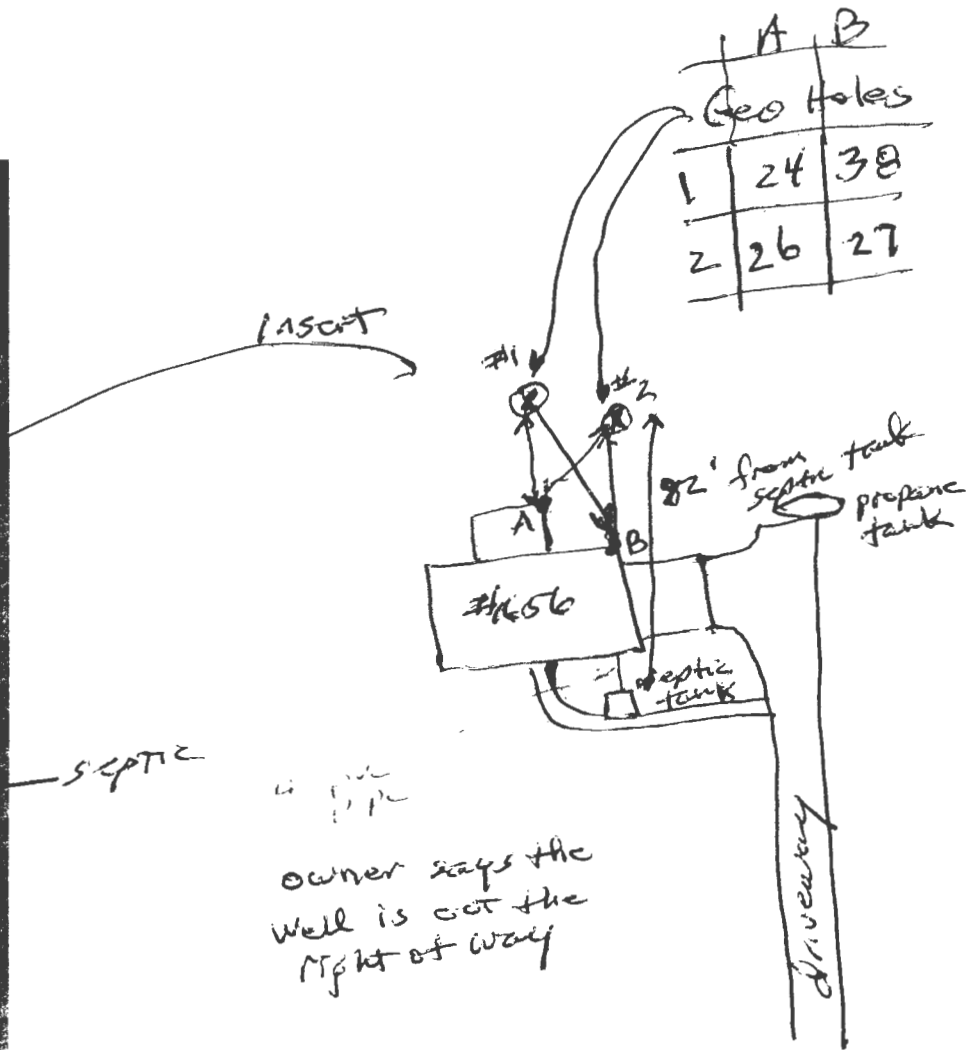 A B
Geo Holes
1 24 38
2 26 27
Insert
#1
#2
82' from
septic tank
propane
tank
A
B
septic
tank
septic
pipe
owner says the
well is at the
right of way
driveway